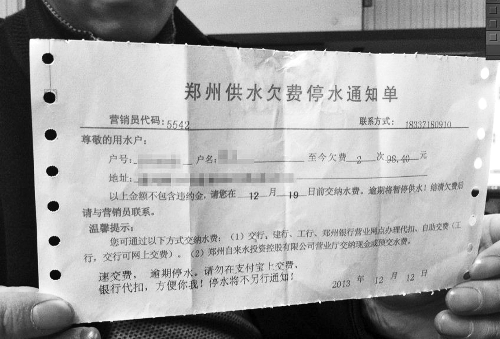 郑州供水欠费停水通知单
营销员代码：5542 联系方式： 18337180910
尊敬的用水户：
户号： 户名： 至今欠费 2 次 98.40 元
地址：
以上金额不包含违约金，请您在 12 月 19 日前交纳水费。逾期将暂停供水！结清欠费后
请与营销员联系。
温馨提示：
您可通过以下方式交纳水费：（1）交行、建行、工行、郑州银行营业网点办理代扣、自助交费（工
行，交行可网上交费）。（2）郑州自来水投资控股有限公司营业厅交纳现金或预交水费。
速交费， 逾期停水。请勿在支付宝上交费、
银行代扣，方便你我！停水将不另行通知！ 2013 年 12 月 12 日